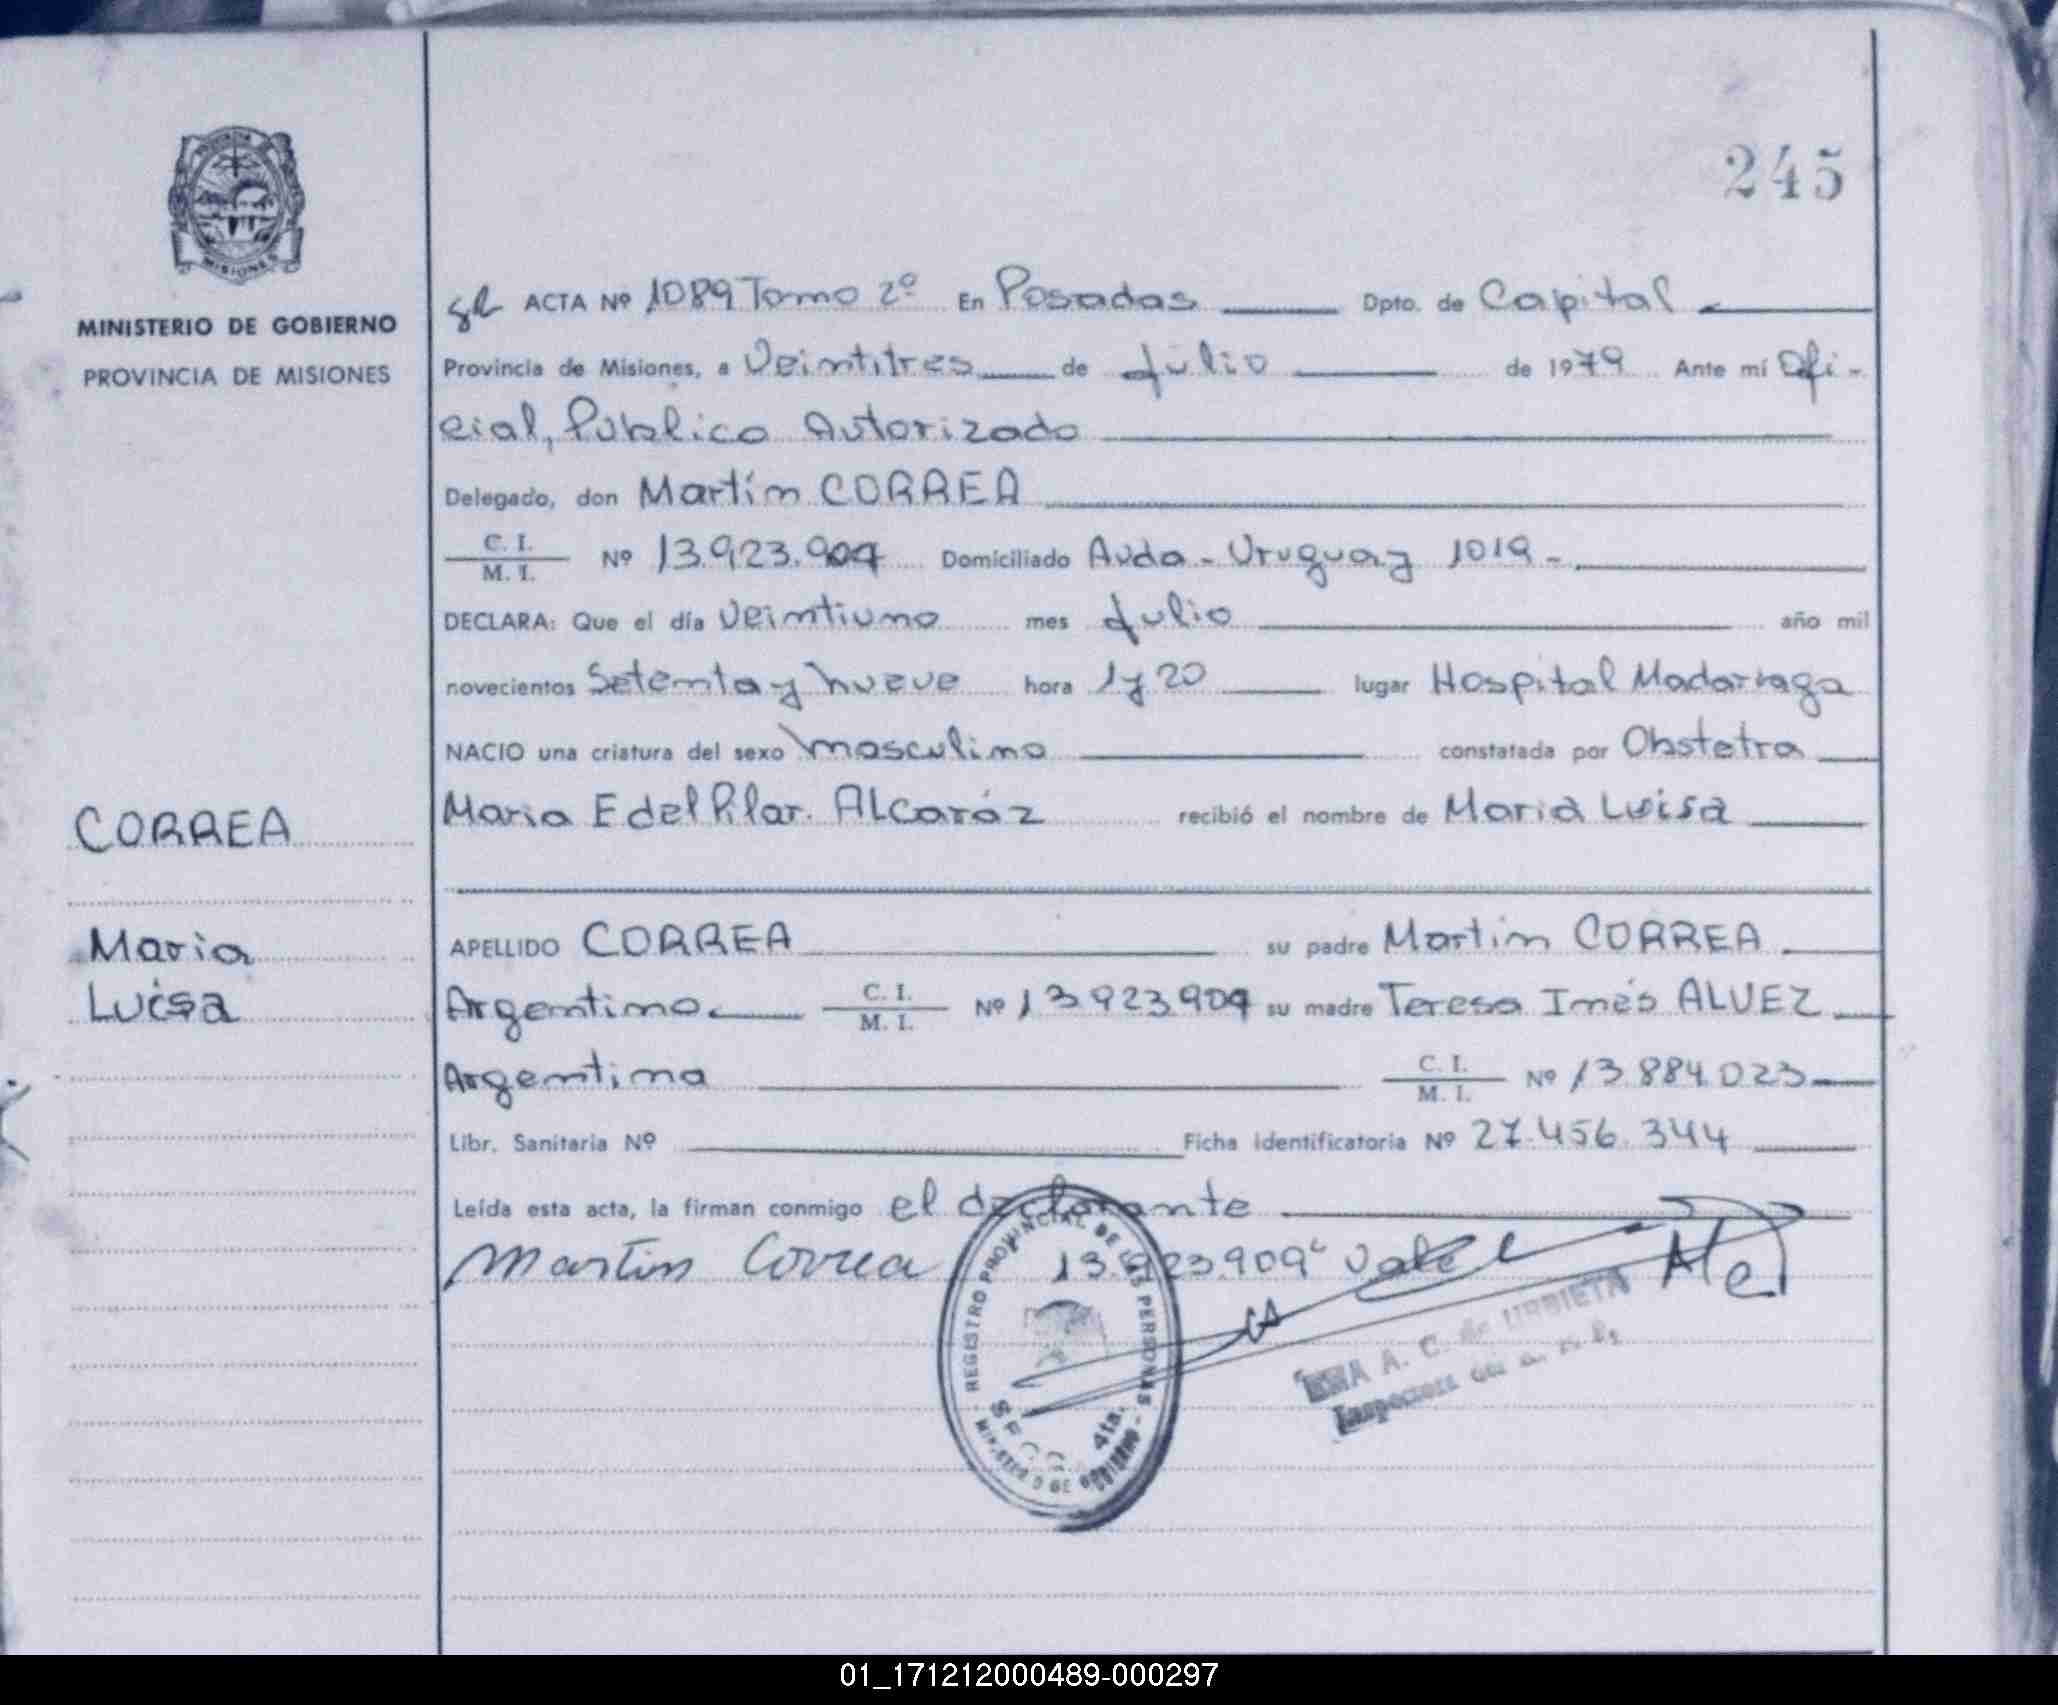 245
MISIONES
MINISTERIO DE GOBIERNO
PROVINCIA DE MISIONES
ACTA Nº 1089 Tomo 2º En Posadas Dpto. de Capital
Provincia de Misiones, a Veintitres de Julio de 1979 Ante mí Ofi-
cial, Publico Autorizado
Delegado, don Martín CORREA
C. I.
M. I. Nº 13.923.909 Domiciliado Avda - Uruguay 1019 -
DECLARA: Que el día Veintiuno mes Julio año mil
novecientos Setenta y nueve hora 1 y 20 lugar Hospital Madariaga
NACIO una criatura del sexo masculino constatada por Obstetra
Maria E del Pilar. ALcaráz recibió el nombre de Maria Luisa
CORREA
Maria
Luisa
APELLIDO CORREA su padre Martin CORREA
Argentino C. I.
M. I. Nº 13923909 su madre Teresa Inés ALVEZ
Argentina C. I.
M. I. Nº 13.884.023
Libr. Sanitaria Nº Ficha identificatoria Nº 27.456.344
Leída esta acta, la firman conmigo el declarante
Martin Correa 13.923.909" Vale
REGISTRO PROVINCIAL DE LAS PERSONAS
4ta.
MINISTERIO DE GOBIERNO
A. C. de URBIETA
Inspectora
01_171212000489-000297